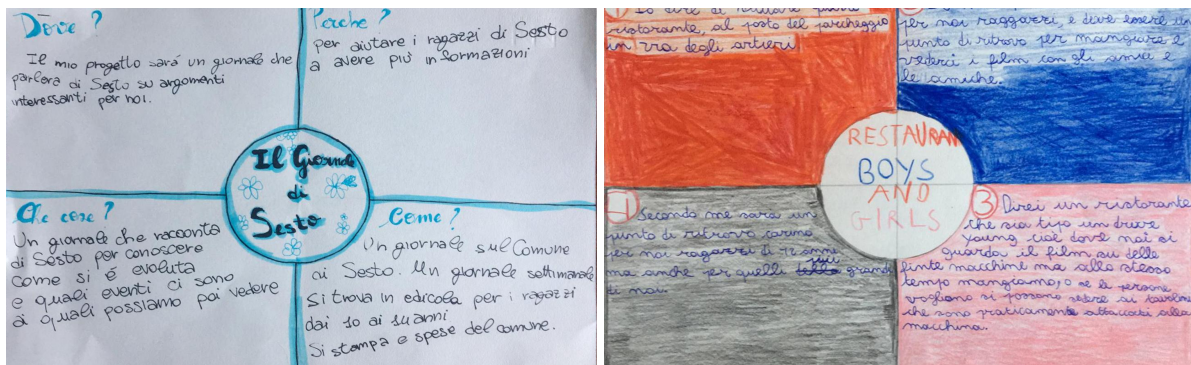 Dove?
Il mio progetto sará un giornale che
parlerà di Sesto su argomenti
interessanti per noi.
Perche?
per aiutare i ragazzi di Sesto
a avere più informazioni
Il Giornale
di
Sesto
Che cose?
Un giornale che racconta
di Sesto per conoscere
come si é evoluta
e quali eventi ci sono
ai quali possiamo poi vedere
Come?
Un giornale sul Comune
di Sesto. Un giornale settimanale
Si trova in edicola per i ragazzi
dai 10 ai 14 anni
Si stampa e spese del comune.
Io direi di
ristorante, al posto del parcheggio
in via degli artieri
per noi raggazzi, e deve essere un
punto di ritrovo per mangiare e
vederci i film con gli amici e
le amiche.
RESTAURAN
BOYS
AND
GIRLS
1 Secondo me sara un
punto di ritrovo carino
per noi ragazzi di 12 anni
ma anche per quelli più grandi
di noi.
3 Direi un ristorante
che sia tipo un drive
young cioè dove noi si
guarda il film su delle
finte macchine ma allo stesso
tempo mangiamo, o se le persone
vogliano si possano sedere ai tavolini
che sono praticamente attaccati alla
macchina.